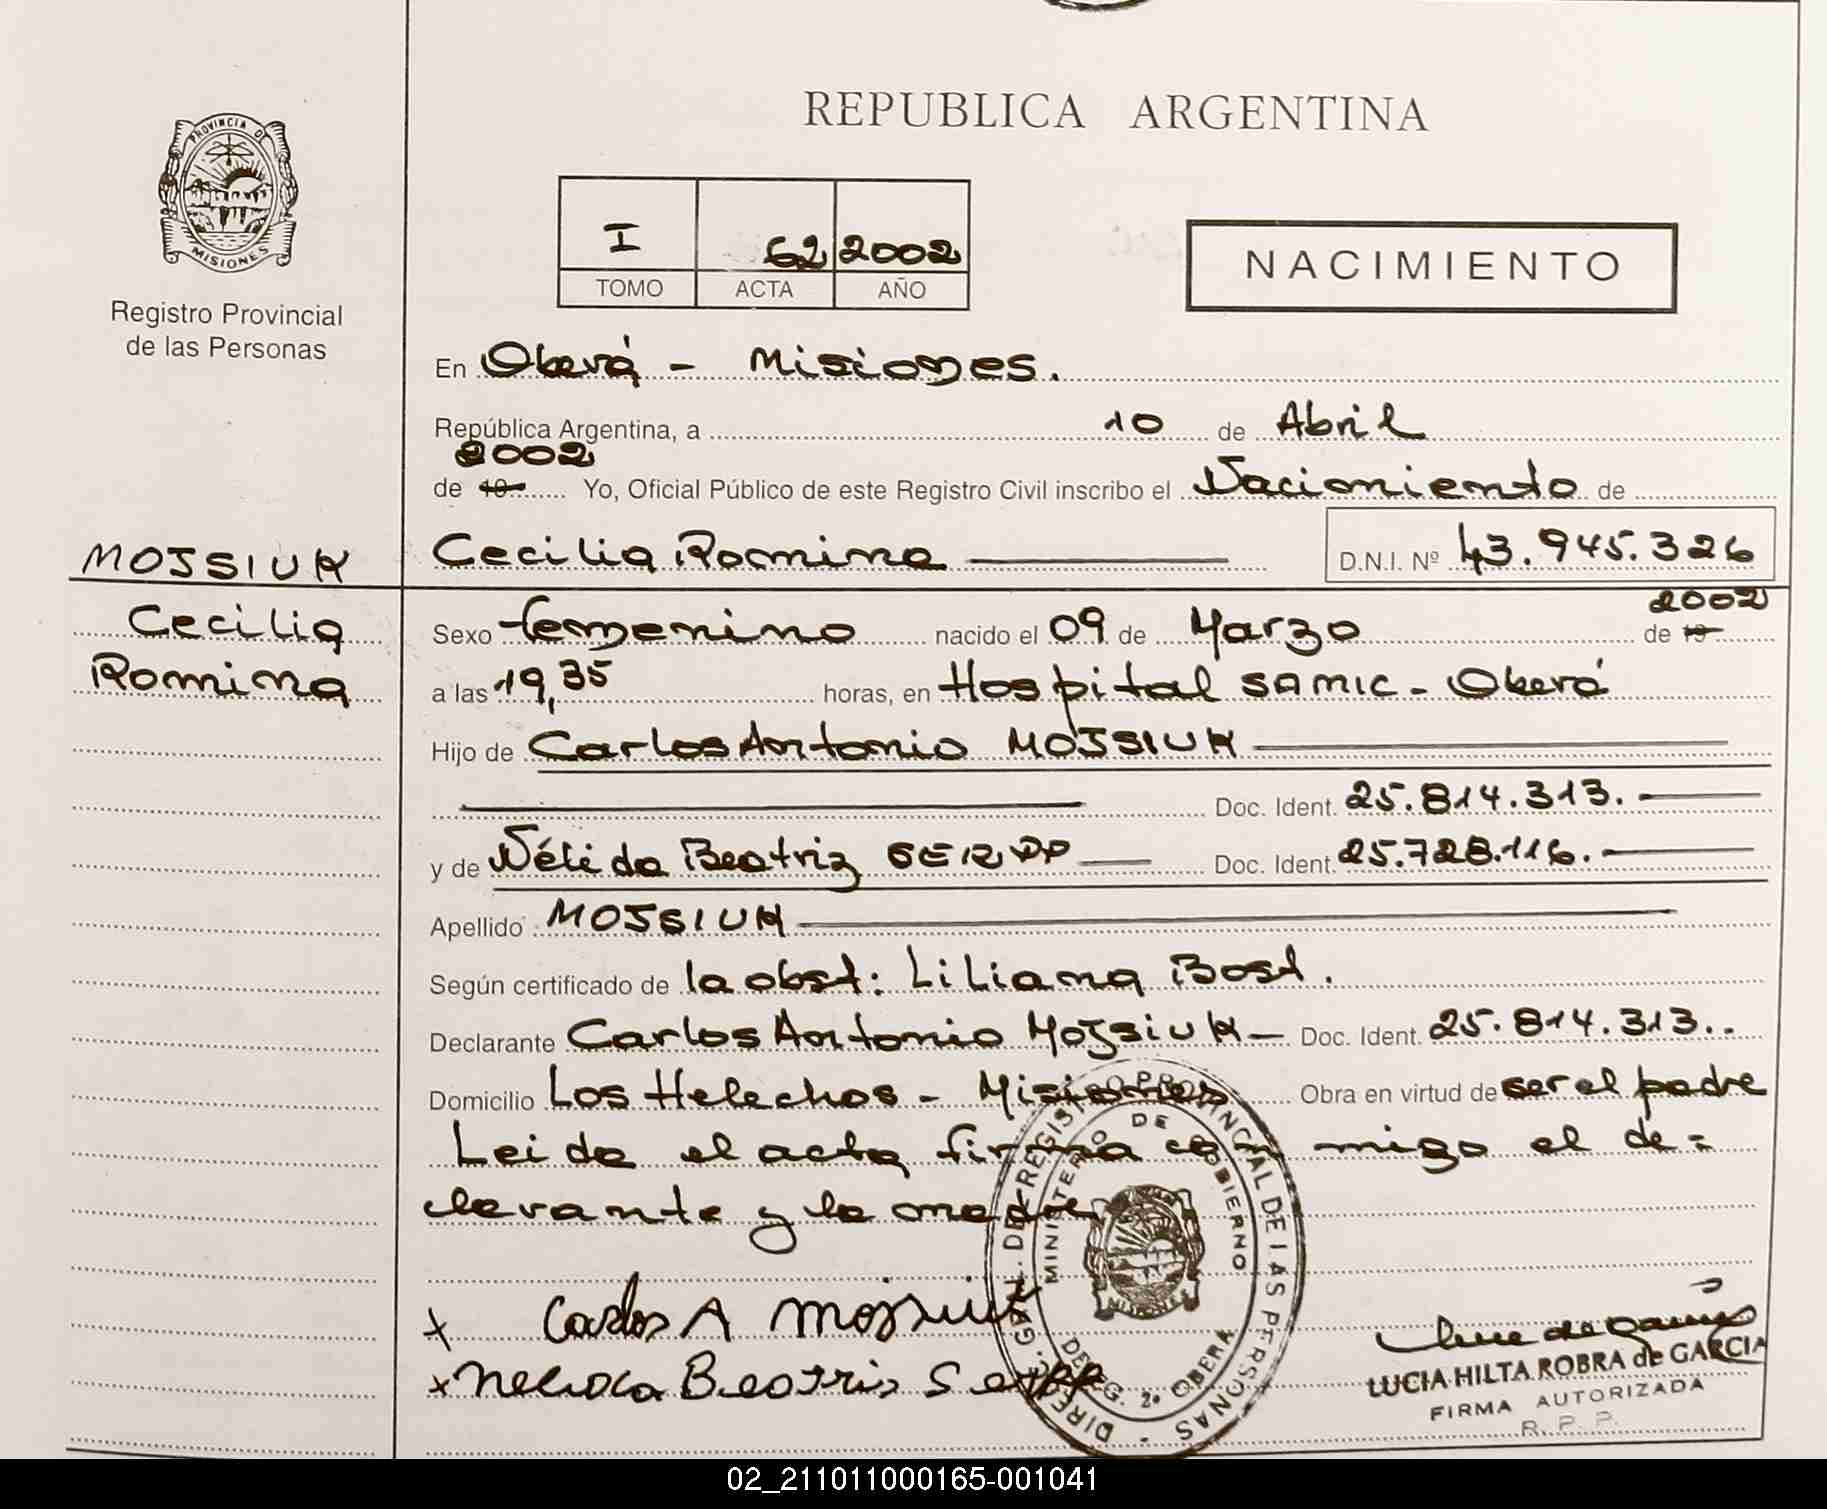 REPUBLICA ARGENTINA
PROVINCIA DE
MISIONES
Registro Provincial
de las Personas
I 62 2002
TOMO ACTA AÑO
NACIMIENTO
En Oberá - Misiones.
República Argentina, a 10 de Abril
2002
de 19 Yo, Oficial Público de este Registro Civil inscribo el Nacimiento de
MOJSIUK
Cecilia Romina D.N.I. Nº 43.945.326
Cecilia
Romina
2002
Sexo femenino nacido el 09 de Marzo de 19
a las 19,35 horas, en Hospital SAMIC - Oberá
Hijo de Carlos Antonio MOJSIUK
Doc. Ident. 25.814.313.
y de Nélida Beatriz Doc. Ident. 25.728.116.
Apellido MOJSIUK
Según certificado de la obst: Liliana Bost.
Declarante Carlos Antonio Mojsiuk - Doc. Ident. 25.814.313..
Domicilio Los Helechos - Misiones Obra en virtud de ser el padre
Leida el acta firma con migo el de=
clarante y la madre
x Carlos A Mojsiuk
x Nelida Beatris
DIRECC. GRAL. DEL REGISTRO PROVINCIAL DE LAS PERSONAS -
MINISTERIO DE GOBIERNO
MISIONES
DELEG. 2ª OBERA
LUCIA HILTA ROBRA de GARCIA
FIRMA AUTORIZADA
R. P. P.
02_211011000165-001041